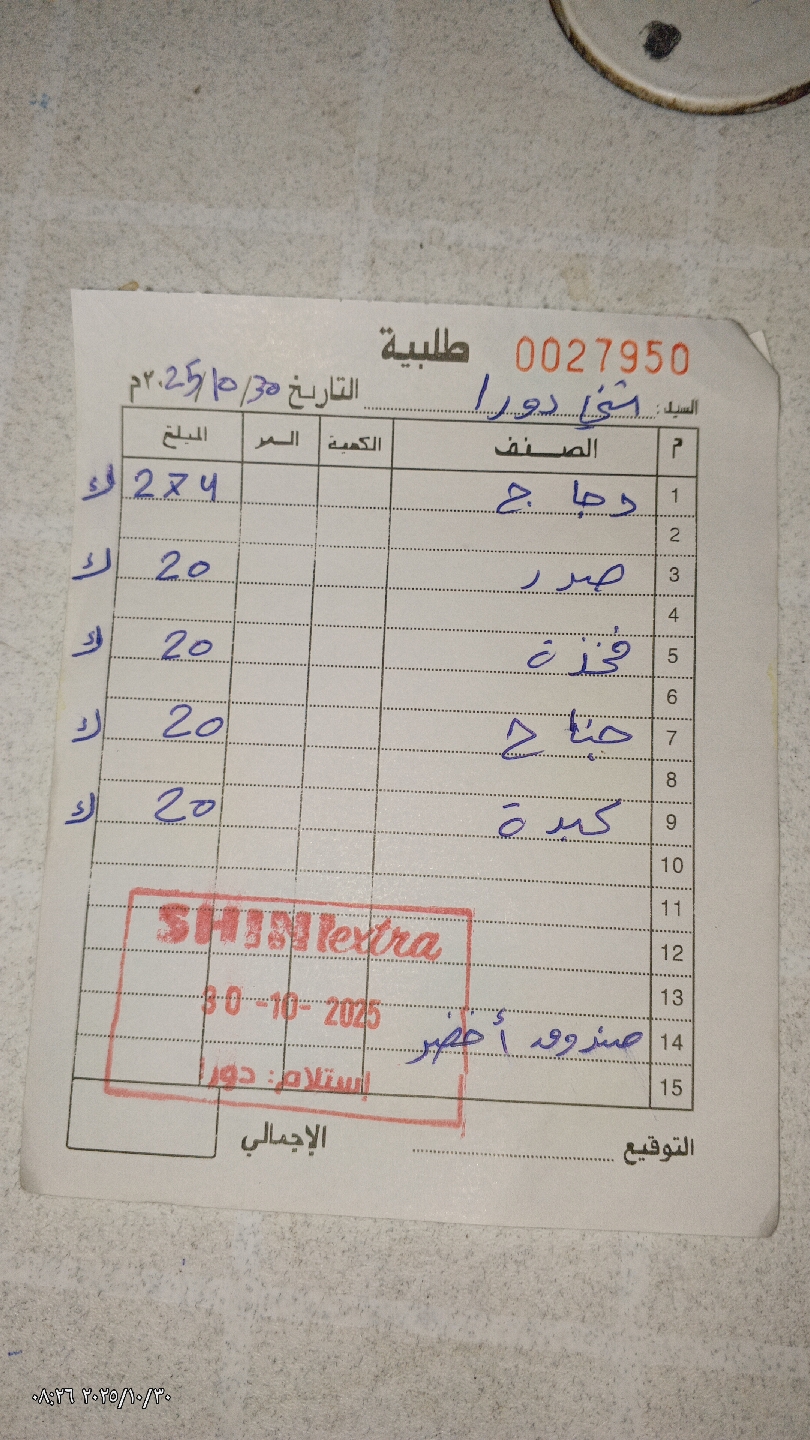 طلبية
0027950
السيد: شني دورا
التاريخ 30/10/25٢٠م
م الصنف الكمية السعر المبلغ
1 دجاج 274 ك
2
3 صدر 20 ك
4
5 فخذة 20 ك
6
7 جناح 20 ك
8
9 كبدة 20 ك
10
11
12
13
14 صندوق أخضر
15
SHINI extra
30 -10- 2025
إستلام: دورا
التوقيع
الإجمالي
٠٨:٢٦ ٢٠٢٥/١٠/٣٠